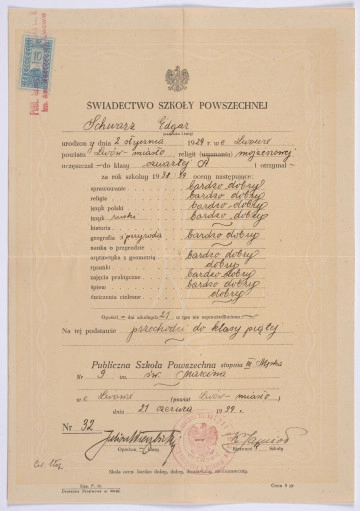 10
ŚWIADECTWO SZKOŁY POWSZECHNEJ
Schwarz Edgar
(nazwisko i imię)
urodzony dnia 2 stycznia 1929 we Lwowie
powiatu Lwów-miasto religii (wyznania) mojżeszowej
uczęszczał do klasy czwartej A i otrzymał
za rok szkolny 1938/39 oceny następujące:
sprawowanie bardzo dobry
religia bardzo dobry
język polski bardzo dobry
język ruski bardzo dobry
historia
geografia i przyroda bardzo dobry
nauka o przyrodzie
arytmetyka z geometrią bardzo dobry
rysunki dobry
zajęcia praktyczne bardzo dobry
śpiew bardzo dobry
ćwiczenia cielesne dobry
Opuścił dni szkolnych 21 w tym nie usprawiedliwiono
Na tej podstawie przechodzi do klasy piątej
Publiczna Szkoła Powszechna stopnia III Męska
Nr 9 im. św. Marcina
we Lwowie (powiat Lwów-miasto)
dnia 21 czerwca 1939.
Nr 32
Opiekun klasy
Kierownik Szkoły
Skala ocen: bardzo dobry, dobry, dostateczny, niedostateczny.
Cena 8 gr.